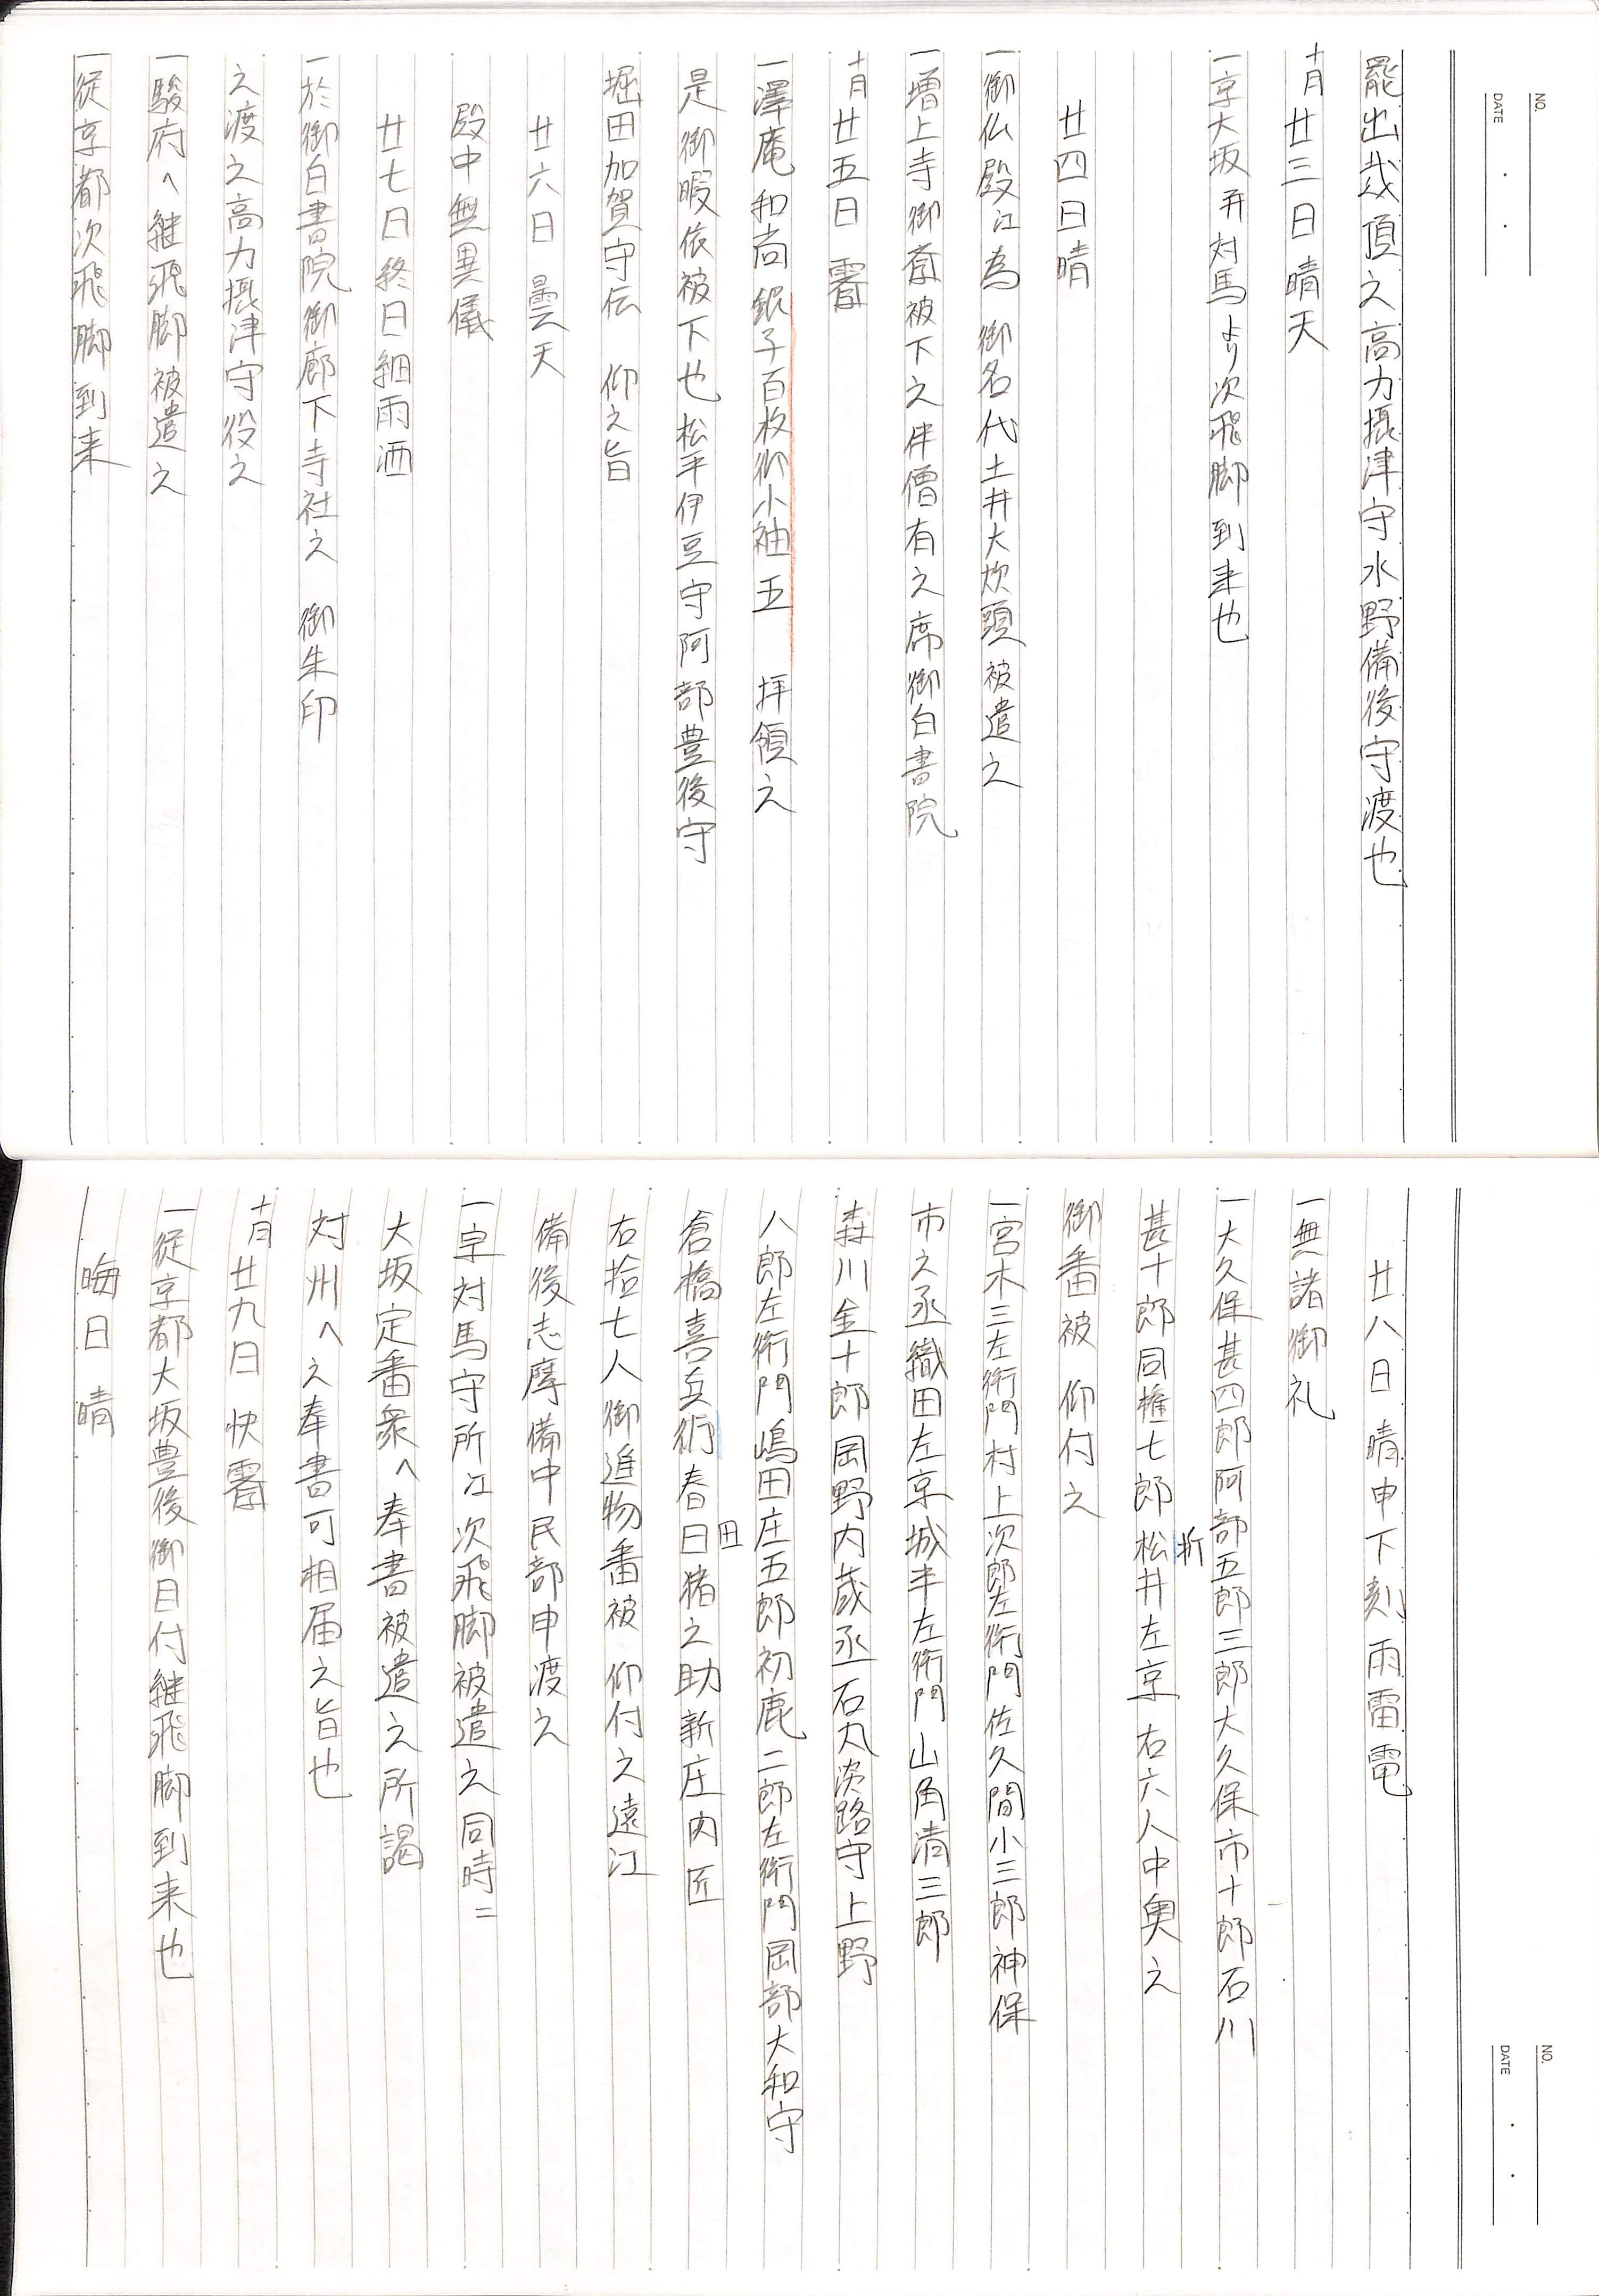 NO.
DATE
罷出哉頂之高力摂津守水野備後守渡也
十月廿三日晴天
一京大坂并対馬より次飛脚到来也
廿四日晴
一御仏殿江為　御名代土井大炊頭被遣之
一増上寺御斎被下之伴僧有之席御白書院
十月廿五日　霽
一澤庵和尚銀子百枚御小袖五　拝領之
是御暇依被下也松平伊豆守阿部豊後守
堀田加賀守伝　仰之旨
廿六日　曇天
殿中無異儀
廿七日終日細雨洒
一於御白書院御廊下寺社之　御朱印
之渡之高力摂津守役之
一駿府へ継飛脚被遣之
一従京都次飛脚到来
NO.
DATE
廿八日晴申下刻雨雷電
一無諸御礼
一大久保甚四郎阿部五郎三郎大久保市十郎石川
甚十郎同権七郎松井左京右六人中奥之
折
御番被　仰付之
一宮木三左衛門村上次郎左衛門佐久間小三郎神保
市之丞織田左京城半左衛門山角清三郎
森川金十郎岡野内蔵丞石丸淡路守上野
八郎左衛門嶋田庄五郎初鹿二郎左衛門岡部大和守
倉橋喜兵術春日猪之助新庄内匠
田
右拾七人御進物番被　仰付之遠江
備後志摩備中民部申渡之
一宗対馬守所江次飛脚被遣之同時ニ
大坂定番衆へ奉書被遣之所謁
対州へ之奉書可相届之旨也
十月廿九日　快霽
一従京都大坂豊後御目付継飛脚到来也
晦日　晴